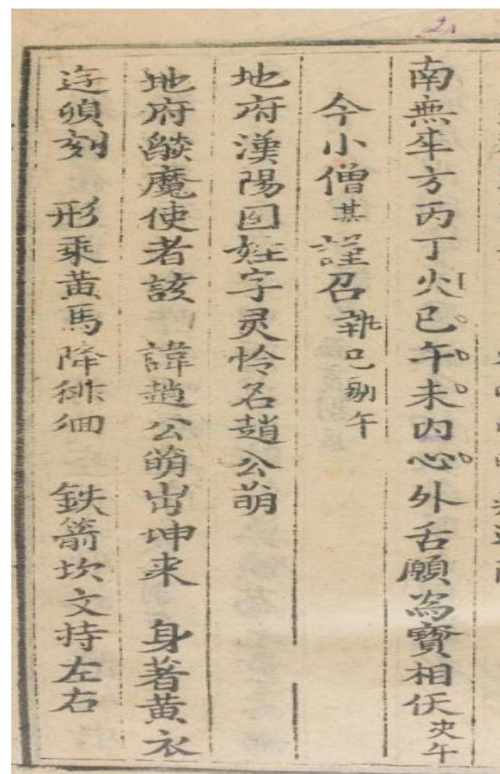 南無𢆥方丙丁火巳午未内心外舌願為寳相仸决午
今小僧某謹召執巳剔午
地府漢陽囯姓字灵怜名趙公萌
地府燄魔使者該 諱趙公萌出坤来 身著黄衣
迬頃刻 形乘黄馬降徘徊 鉄箭坎文持左右